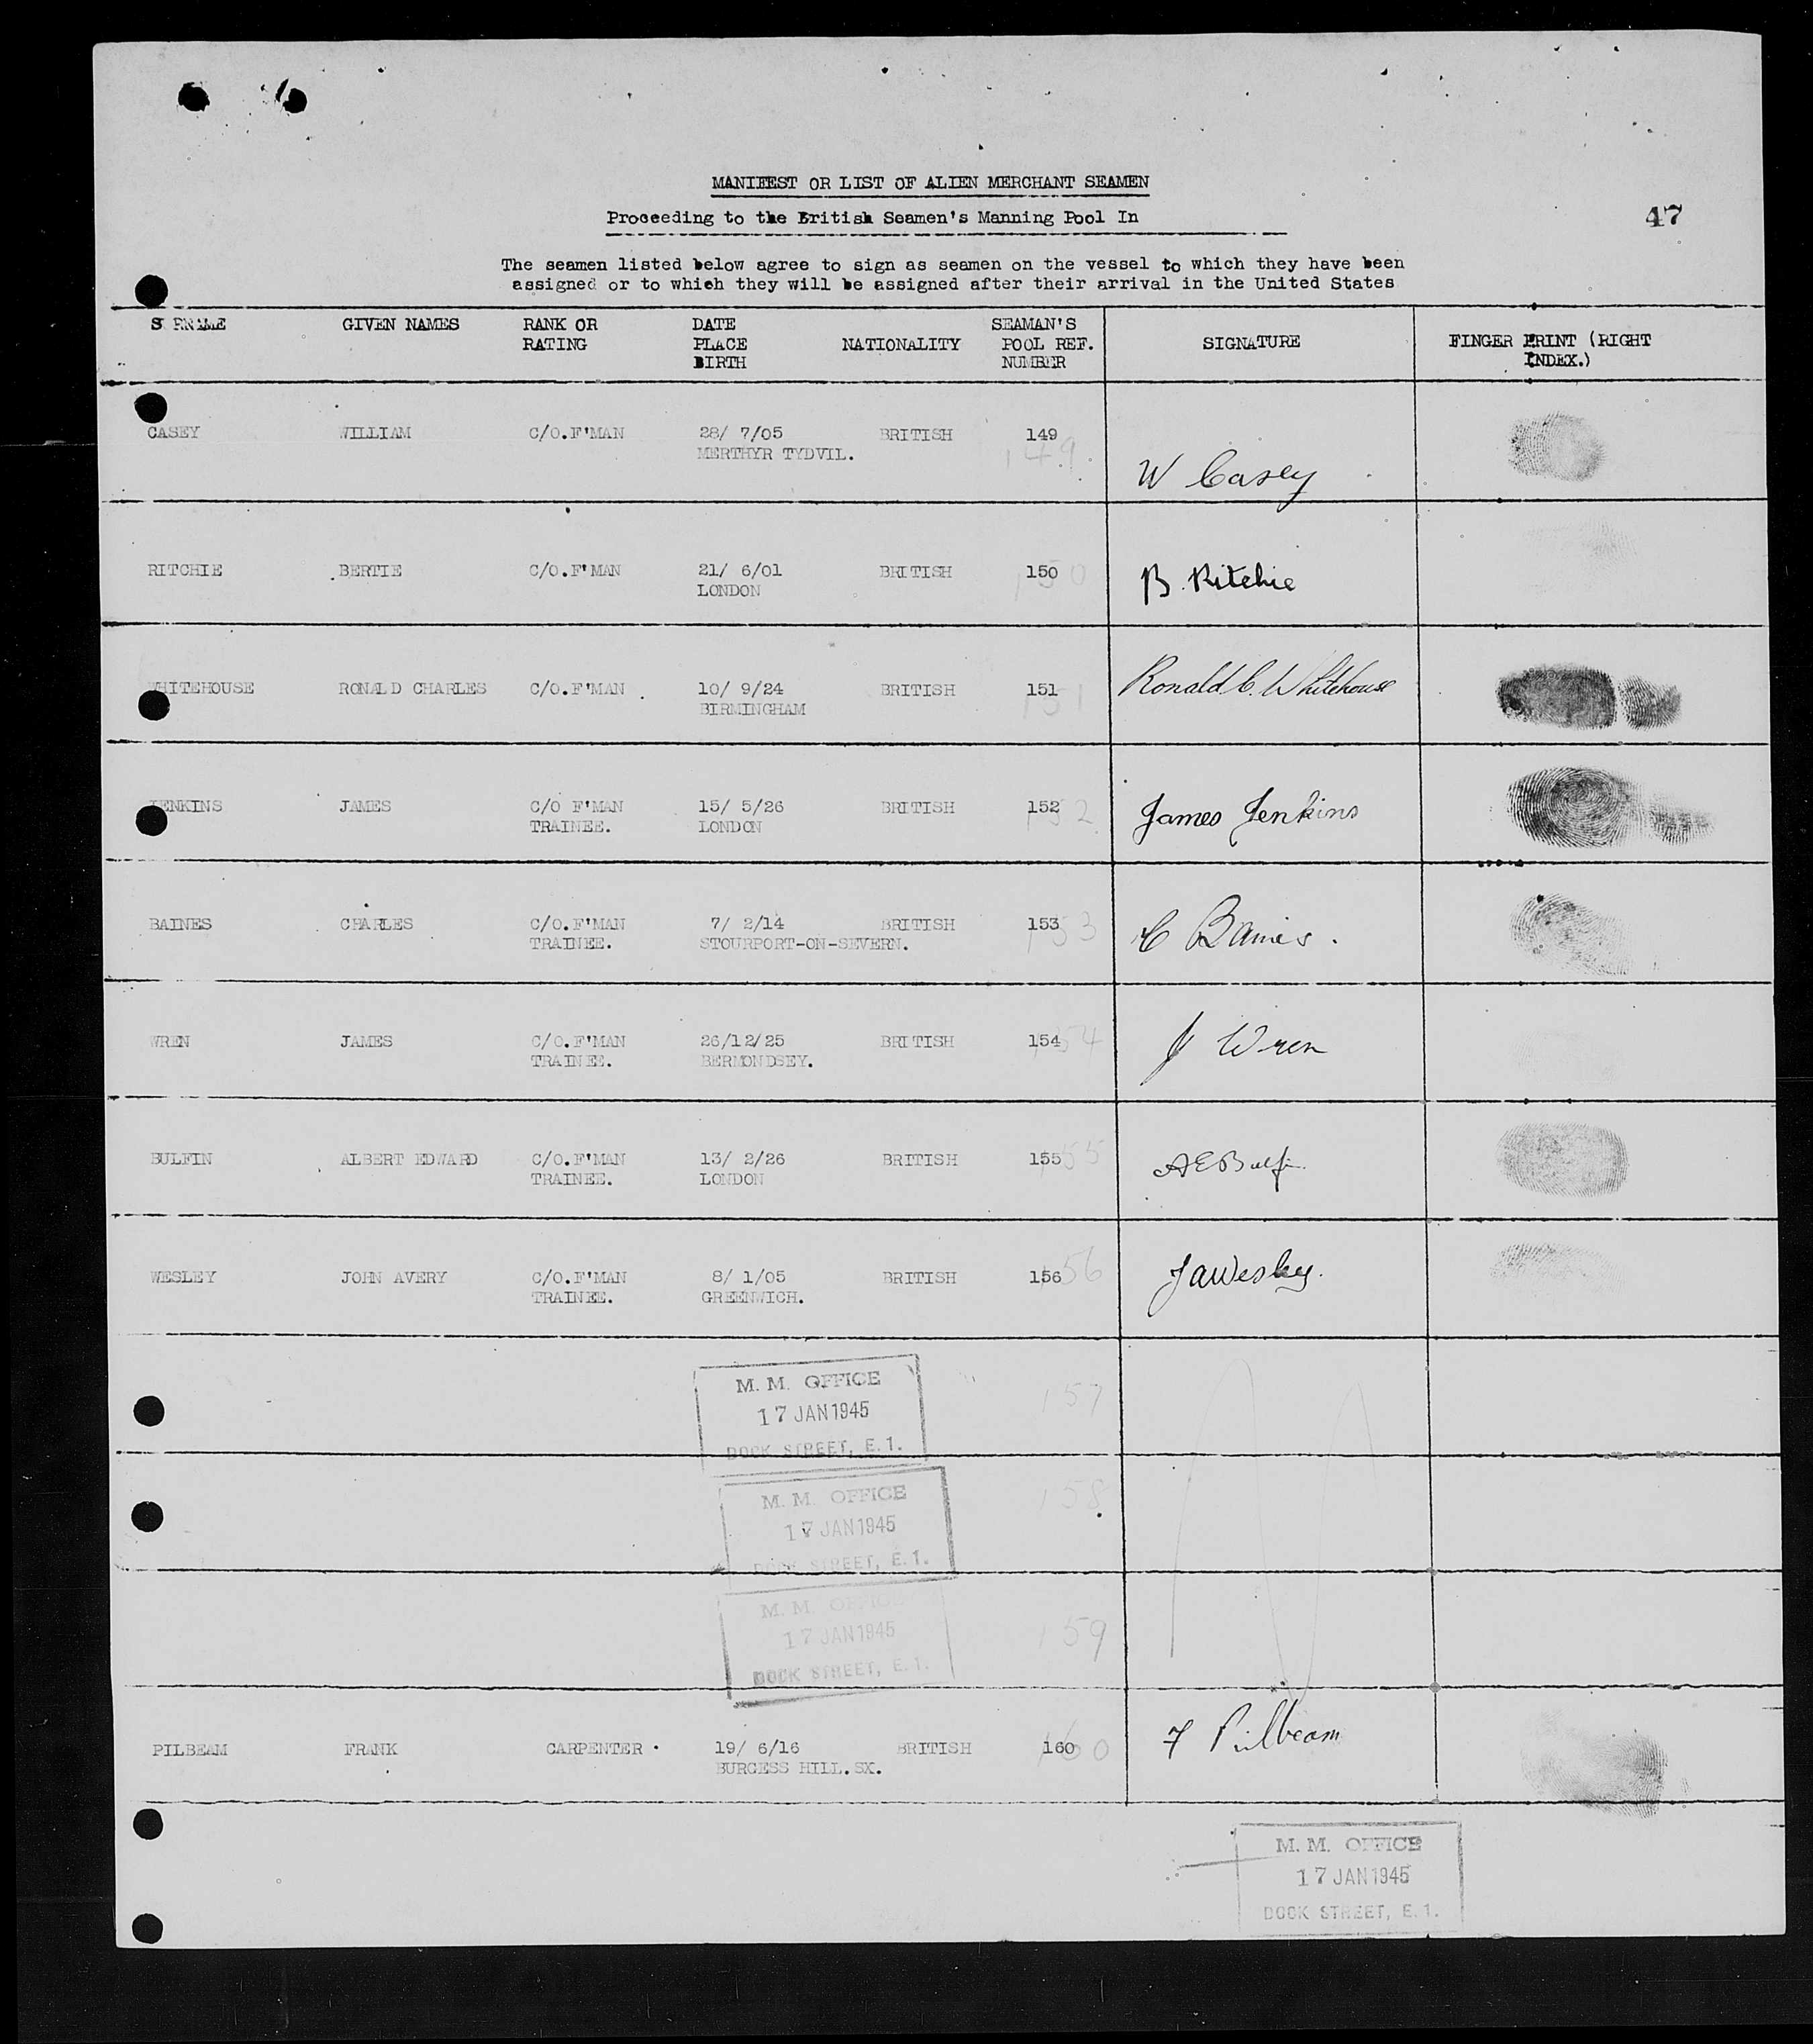 MANIFEST OR LIST OF ALIEN MERCHANT SEAMEN
Proceeding to the British Seamen's Manning Pool In
47
The seamen listed below agree to sign as seamen on the vessel to which they have been
assigned or to which they will be assigned after their arrival in the United States
SURNAME GIVEN NAMES RANK OR RATING DATE PLACE BIRTH NATIONALITY SEAMAN'S POOL REF. NUMBER SIGNATURE FINGER PRINT (RIGHT INDEX.)
CASEY WILLIAM C/O.F'MAN 28/ 7/05 BRITISH 149 149
MERTHYR TYDVIL.
W Casey
RITCHIE BERTIE C/O.F'MAN 21/ 6/01 BRITISH 150 150 B. Ritchie
LONDON
WHITEHOUSE RONALD CHARLES C/O.F'MAN 10/ 9/24 BRITISH 151 151 Ronald C. Whitehouse
BIRMINGHAM
JENKINS JAMES C/O F'MAN 15/ 5/26 BRITISH 152 152 James Jenkins
TRAINEE. LONDON
BAINES CHARLES C/O.F'MAN 7/ 2/14 BRITISH 153 153 C Baines.
TRAINEE. STOURPORT-ON-SEVERN.
WREN JAMES C/O.F'MAN 26/12/25 BRITISH 154 154 J Wren
TRAINEE. BERMONDSEY.
BULFIN ALBERT EDWARD C/O.F'MAN 13/ 2/26 BRITISH 155 155 A E Bulfin
TRAINEE. LONDON
WESLEY JOHN AVERY C/O.F'MAN 8/ 1/05 BRITISH 156 156 J A Wesley.
TRAINEE. GREENWICH.
M. M. OFFICE
17 JAN 1945 157
DOCK STREET, E.1.
M. M. OFFICE 158
17 JAN 1945
DOCK STREET, E.1.
M. M. OFFICE
17 JAN 1945 159
DOCK STREET, E.1.
PILBEAM FRANK CARPENTER 19/ 6/16 BRITISH 160 160 F Pilbeam
BURGESS HILL.SX.
M. M. OFFICE
17 JAN 1945
DOCK STREET, E.1.